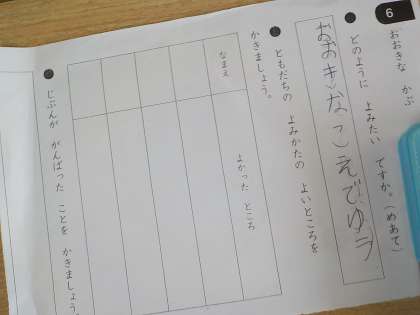 6
おおきな かぶ
どのように よみたい ですか。(めあて)
おおきなこえでゆう
ともだちの よみかたの よいところを
かきましょう。
なまえ
よかった ところ
じぶんが がんばった ことを かきましょう。